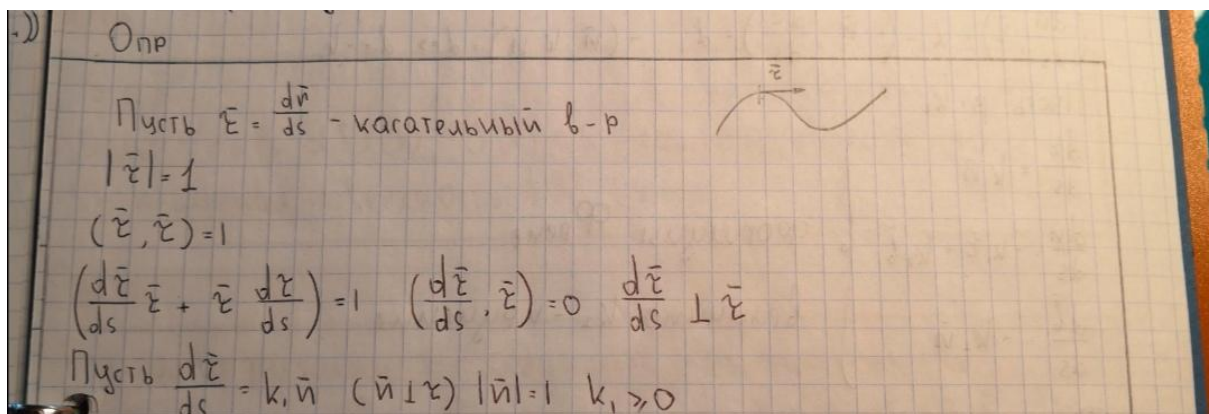 Опр
Пусть τ̄ = dr̄/ds - касательный в-р
τ̄
|τ̄|=1
(τ̄, τ̄)=1
(dτ̄/ds τ̄ + τ̄ dτ/ds)=1 (dτ̄/ds, τ̄)=0 dτ̄/ds ⊥ τ̄
Пусть dτ̄/ds = k₁n̄ (n̄⊥τ) |n̄|=1 k₁≥0